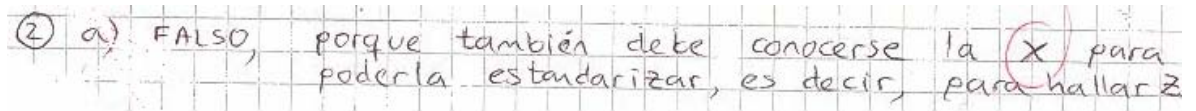 ② a) FALSO, porque también debe conocerse la X para
poderla estandarizar, es decir, para hallar Z